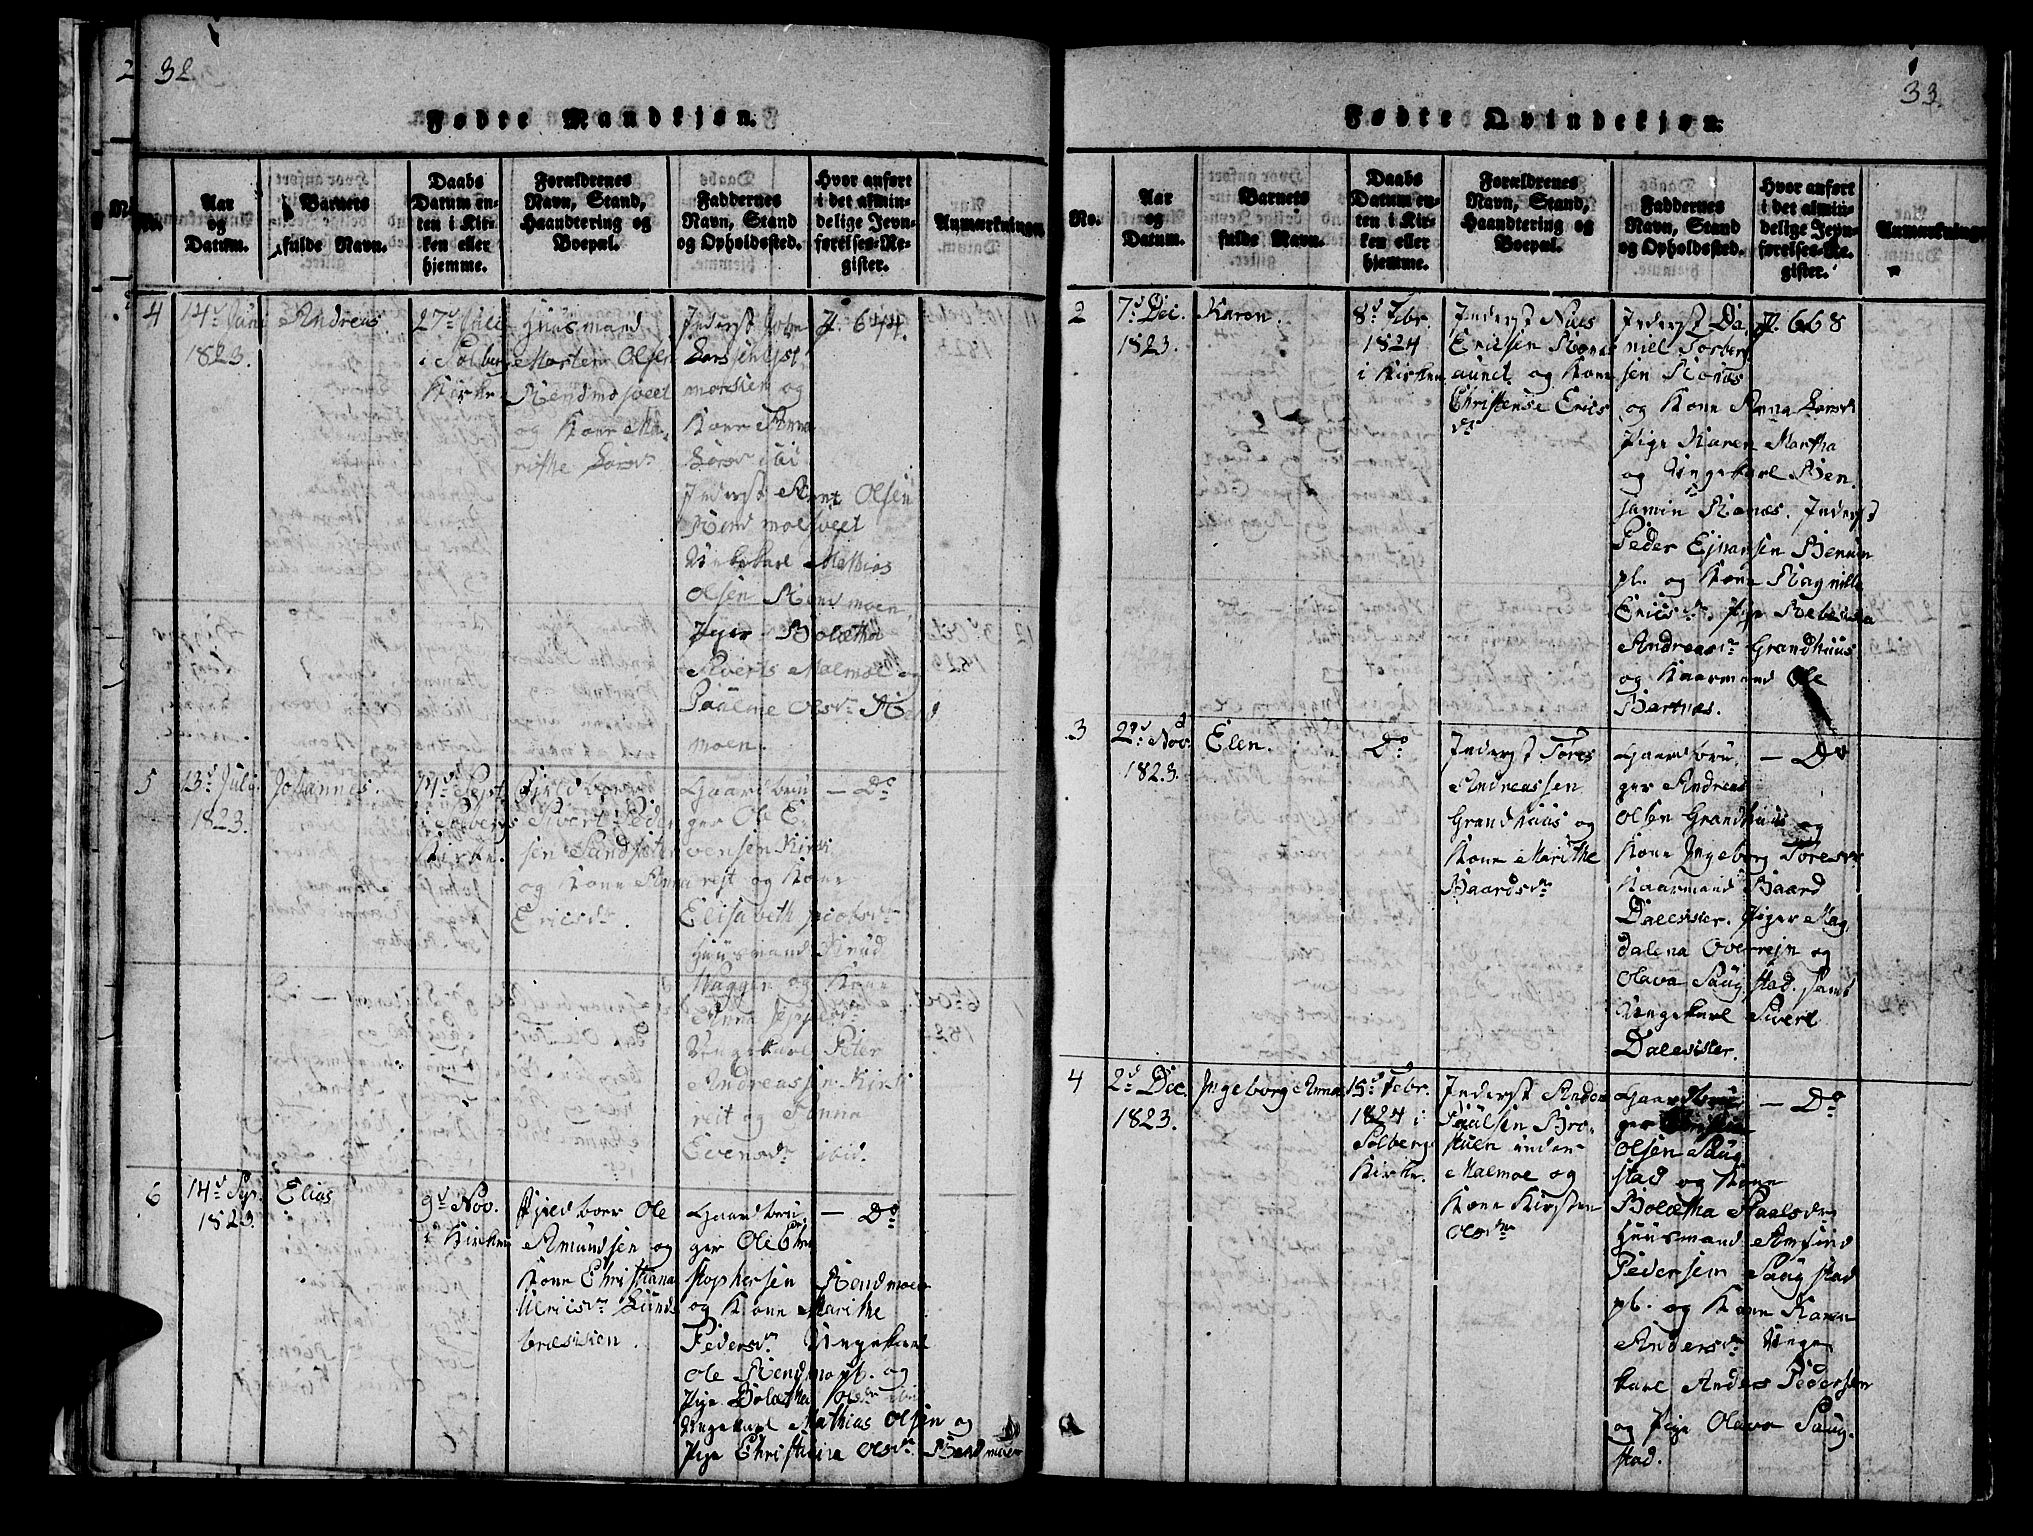 32
Fødte Mandkjøn.
No.
Aar og Datum.
Barnets fulde Navn.
Daabs Datum enten i Kirken eller hjemme.
Forældrenes Navn, Stand, Haandtering og Boepæl.
Faddernes Navn, Stand og Opholdssted.
Hvor anført i det almindelige Jevnførelses-Register.
Anmærkninger.
4
14de Juni
1823.
Andreas.
27de Juli
i Solberg
Kirke
Huusmand
Morten Olsen
og Kone Ma-
rithe Larsdr
Inderst John
og
Kone Anna
Larsdr ibi
Inderst Arnt Olsen
Mathias
Olsen Rendmoen
Piger Bolætha
Siverts Malmoe og
Paaline Olsdr Rend
moen.
P. 644.
5
13de Juli
1823.
Johannes.
14de Sept
i Solbergs
Kirke.
Sivert Peder
sen
og Kone Anna
Ericsdr.
Gaardbru
ger Ole E-
vensen Kirk
reit og Kone
Elisabeth Jacobsdr
Huusmand Knud
Waggen og Kone
Anna
Ungekarl Peter
Andreassen Kirk
reit og Anna
Evensdr ibid.
— Do
6
14de Sep.
1823.
Elias
9de Nov.
i Kirken
Fjeldboer Ole
Amundsen og
Kone Christiana
Ulricsdr Lunds
Gaardbru-
ger Ole Chri
stophersen Rendmoen
og Kone Marithe
Pedersdr Ungekarl
Ole Rendmo pl. og
Pige Bolætha Olsdr ibid
Ungekarl Mathias Olsen og
Pige Christiana Olsdr Rendmoen
— Do
33.
Fødte Qvindekjøn.
No.
Aar og Datum.
Barnets fulde Navn.
Daabs Datum enten i Kirken eller hjemme.
Forældrenes Navn, Stand, Haandtering og Boepæl.
Faddernes Navn, Stand og Opholdssted.
Hvor anført i det almindelige Jevnførelses-Register.
Anmærkninger.
2
7de Dec.
1823.
Karen.
8de Febr.
1824
i Kirken
Inderst Niels
Ericsen Ronæs
aunet og Kone
Christense Erics
dr
Inderst Da
niel Torbers
sen Ronæs
og Kone Anna Larsdr
Pige Karen Martha
og Ungekarl Ben
jamin Ronæs. Inderst
Peder Ejnarsen Benum
pl. og Kone Ragnilla
Ericsdr. Pige Rebecka
Andreasdr Grandhuus
og Kaarmand Ole
Bartnæs.
P. 668
3
29de Nov.
1823.
Elen.
Do
Inderst Tores
Andreassen
Grandhuus og
Kone Marithe
Baardsdr
Gaardbru-
ger Andreas
Olsen Grandhuus og
Kone Ingeborg Toresdr
Kaarmand Baard
Dalesister. Piger Mag
dalena Overrejn og
Olava Saugstad. samt
Ungekarl Sivert
Dalesister.
— Do
4
2de Dec.
1823.
Ingeborg Anna
15de Febr.
1824 i
Solberg
Kirke.
Inderst Anders
Paalsen Bro-
stuen under
Malmoe og
Kone Kirsten
Olsdr
Gaardbru
ger
Olsen Saug
stad og Kone
Bolætha Paalsdr
Huusmand Amund
Pedersen Saugstad
pl. og Kone Karen
Andersdr Unge
karl Anders Pedersen
og Pige Olava Saug-
stad.
— Do